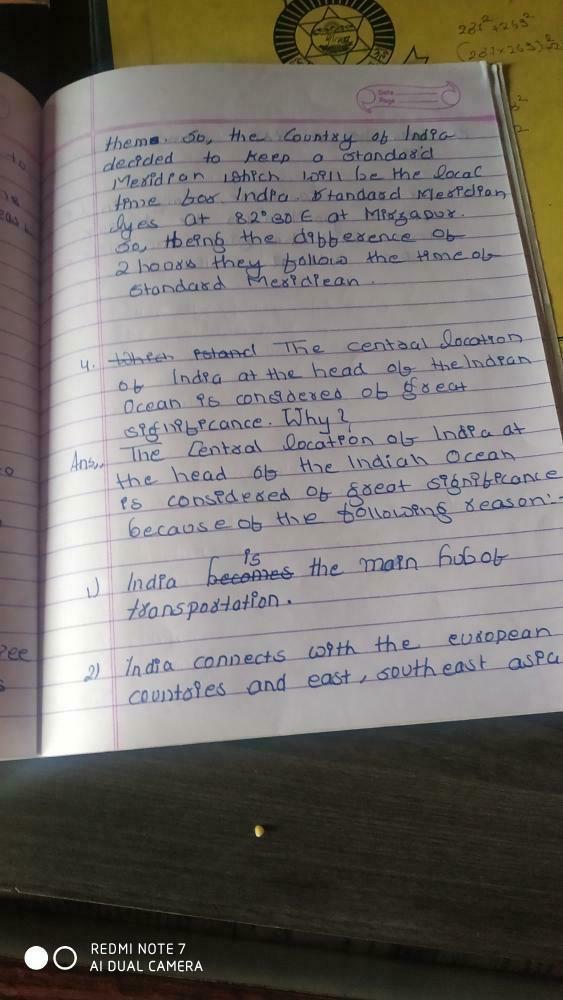 Date
Page
theme. So, the Country of India
decided to keep a standard
Meridian which will be the local
time for India. Standard Meridian
lyes at 82°30 E at Mirzapur.
So, being the difference of
2 hours they follow the time of
Standard Meridiean.
4. Which The central location
of India at the head of the Indian
Ocean is considered of great
significance. Why?
Ans. The Central location of India at
the head of the Indian Ocean
is considered of great significance
because of the following reason:-
1) India becomes is the main hub of
transportation.
2) India connects with the european
countries and east, southeast asia
REDMI NOTE 7
AI DUAL CAMERA